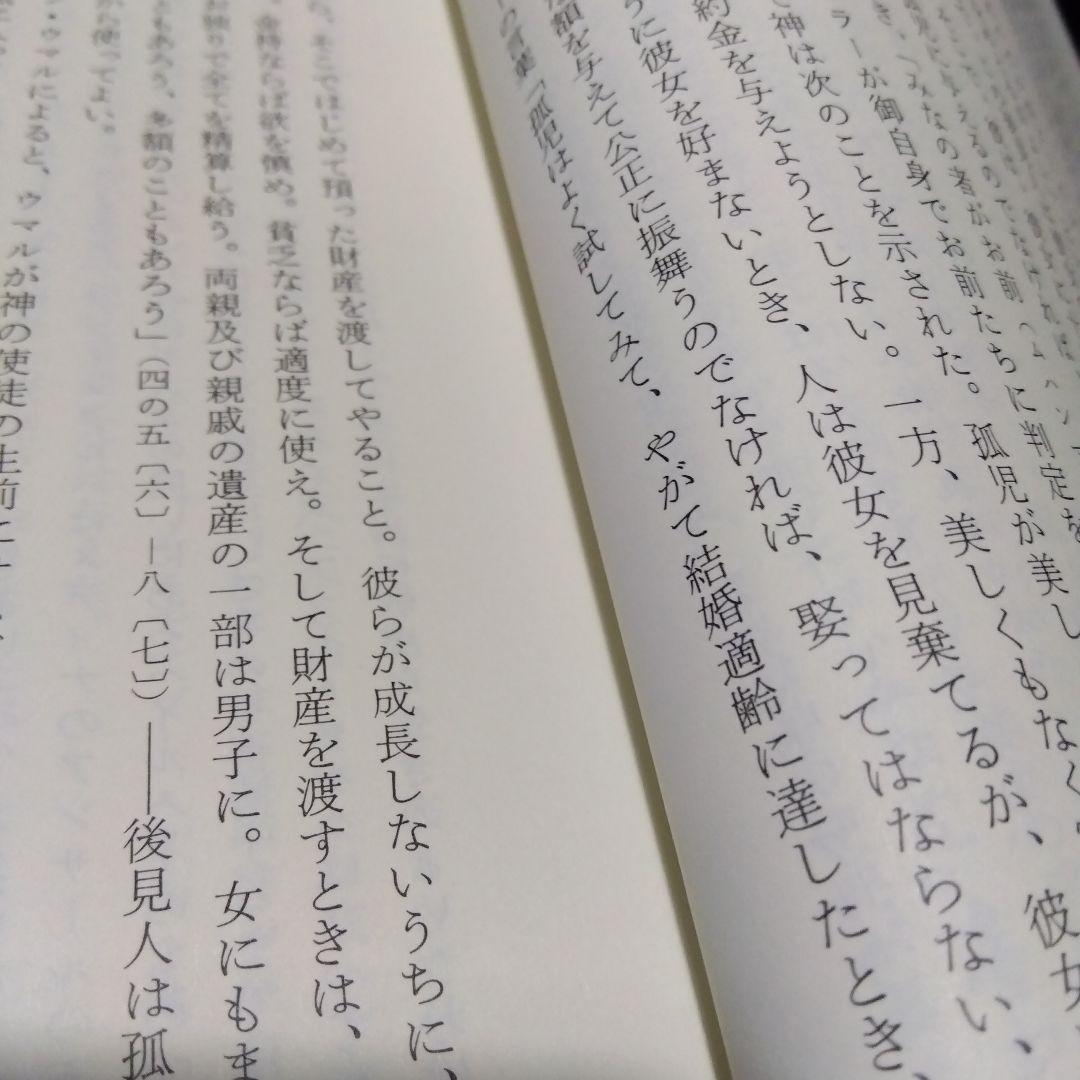 ラーが御自身でお前たちに判定を
神は次のことを示された。孤児が美し
約金を与えようとしない。一方、美しくもなく
うに彼女を好まないとき、人は彼女を見棄てるが、彼女
額を与えて公正に振舞うのでなければ、娶ってはならない、
の言葉「孤児はよく試してみて、やがて結婚適齢に達したとき、
そこではじめて預った財産を渡してやること。彼らが成長しないうちに、
金持ならば欲を慎め。貧乏ならば適度に使え。そして財産を渡すときは、
お独りで全てを精算し給う。両親及び親戚の遺産の一部は男子に。女にもま
ともあろう、多額のこともあろう」(四の五〔六〕―八〔七〕)――後見人は孤
から使ってよい。
ウマルによると、ウマルが神の使徒の生前に